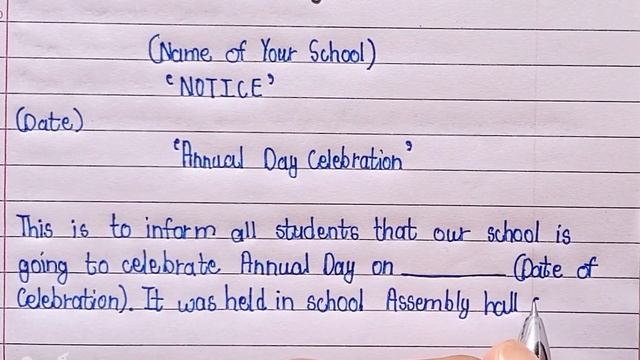 (Name of Your School)
'NOTICE'
(Date)
'Annual Day Celebration'
This is to inform all students that our school is
going to celebrate Annual Day on ________ (Date of
Celebration). It was held in school Assembly hall